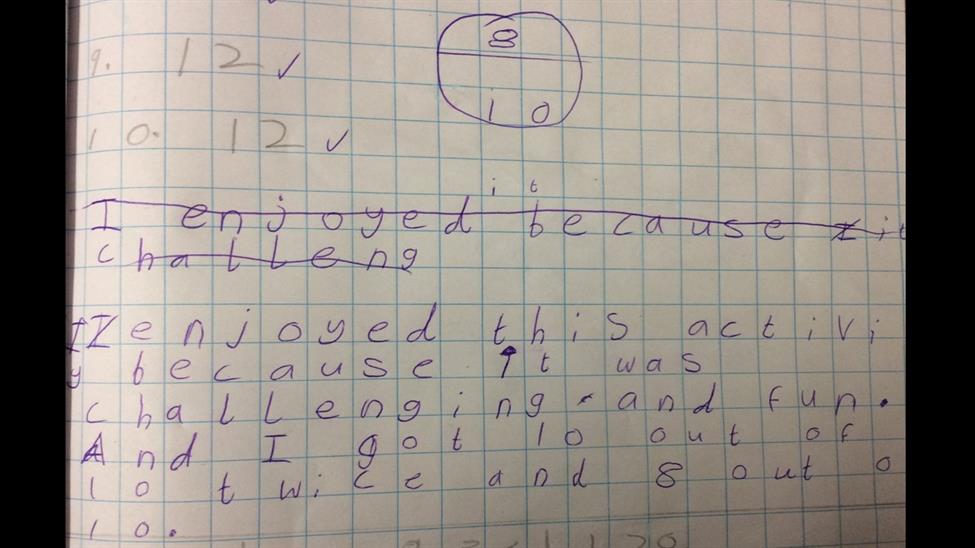 9. 12 ✓
8
10
10. 12 ✓
it
I enjoyed because it
challeng
I enjoyed this activi
y because it was
challenging and fun.
And I got 10 out of
10 twice and 8 out o
10.